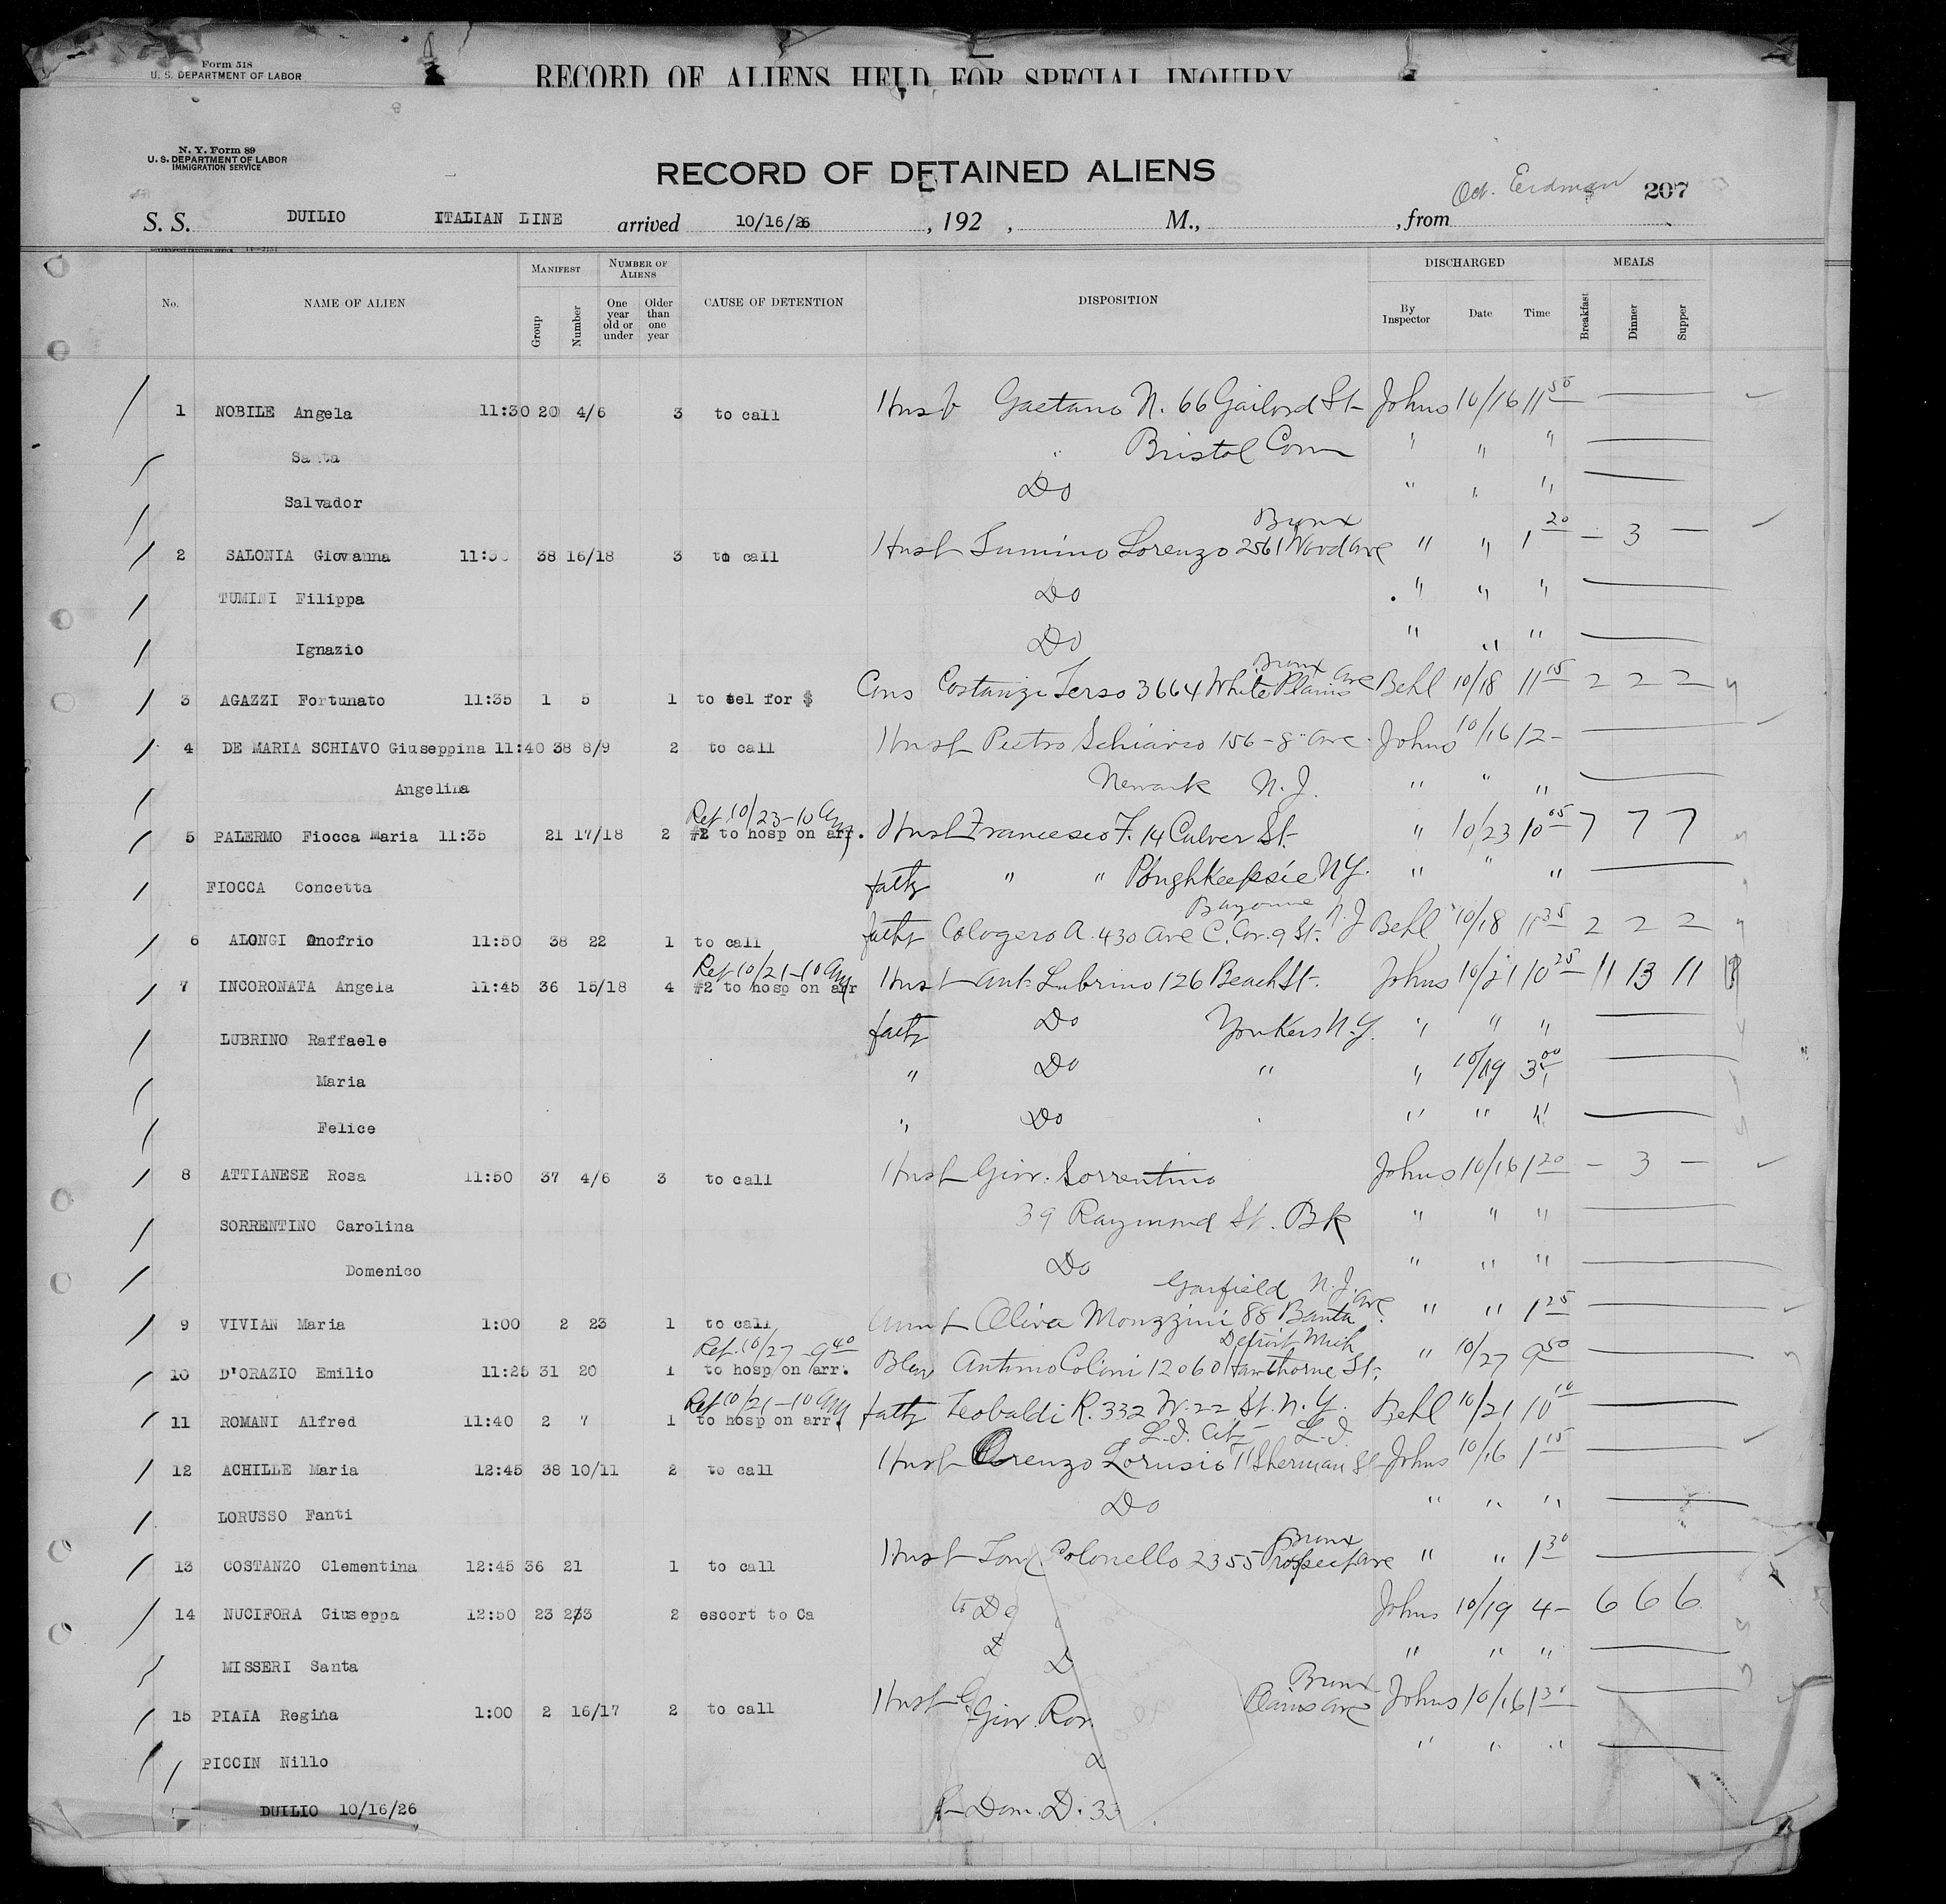 Form 518
U. S. DEPARTMENT OF LABOR
RECORD OF ALIENS HELD FOR SPECIAL INQUIRY
N. Y. Form 89
U. S. DEPARTMENT OF LABOR
IMMIGRATION SERVICE
RECORD OF DETAINED ALIENS
Erdman 207
S. S. DUILIO ITALIAN LINE arrived 10/16/26 , 192 , M., , from
MANIFEST NUMBER OF ALIENS DISCHARGED MEALS
No. NAME OF ALIEN Group Number One year old or under Older than one year CAUSE OF DETENTION DISPOSITION By Inspector Date Time Breakfast Dinner Supper
1 NOBILE Angela 11:30 20 4/6 3 to call Husb Gaetano N. 66 Gailord St Johns 10/16 11 50
Santa " Bristol Conn " " "
Salvador Do " " "
Bronx
2 SALONIA Giovanna 11:30 38 16/18 3 to call Husb Lorenzo 2561 Wood Ave " " 1 20 — 3 —
TUMINI Filippa Do " " "
Ignazio Do " " "
Bronx
3 AGAZZI Fortunato 11:35 1 5 1 to tel for $ Cous Costanzi Terso 3664 White Plains Ave Behl 10/18 11 15 2 2 2
4 DE MARIA SCHIAVO Giuseppina 11:40 38 8/9 2 to call Husb Pietro Schiavo 156 - 8" Ave. Johns 10/16 12 -
Angelina Newark N.J. " " "
Ret 10/23 - 10 am
5 PALERMO Fiocca Maria 11:35 21 17/18 2 #2 to hosp on arr. Husb Francesco F. 14 Culver St. " 10/23 10 05 7 7 7
FIOCCA Concetta fath " " Poughkeepsie N.Y. " " "
Bayonne N.J.
6 ALONGI Onofrio 11:50 38 22 1 to call fath Cologero A. 430 Ave C. Cor. 9 St. Behl 10/18 11 35 2 2 2
Ret 10/21 - 10 am
7 INCORONATA Angela 11:45 36 15/18 4 #2 to hosp on arr Husb Ant. Lubrino 126 Beach St. Johns 10/21 10 25 11 13 11
LUBRINO Raffaele fath Do Yonkers N.Y. " " "
Maria " Do " " 10/19 3 00
Felice " Do " " "
8 ATTIANESE Rosa 11:50 37 4/6 3 to call Husb Giov. Sorrentino Johns 10/16 1 20 — 3 —
SORRENTINO Carolina 39 Raymond St. Bk " " "
Domenico Do " " "
Garfield N.J.
9 VIVIAN Maria 1:00 2 23 1 to call Aunt Oliva Monzzini 88 Banta Ave. " " 1 25
Ret. 10/27 - 9 40 Detroit Mich
10 D'ORAZIO Emilio 11:25 31 20 1 to hosp on arr. Antimo Colini 12060 Hawthorne St. " 10/27 9 50
Ret 10/21 - 10 am
11 ROMANI Alfred 11:40 2 7 1 to hosp on arr. fath Teobaldi R. 332 W. 22 St. N.Y. Behl 10/21 10 10
L.I. City L.I.
12 ACHILLE Maria 12:45 38 10/11 2 to call Husb Lorenzo Lorusio 71 Sherman St Johns 10/16 1 15
LORUSSO Fanti Do " " "
Bronx
13 COSTANZO Clementina 12:45 36 21 1 to call Husb Colonello 2355 Prospect Ave " " 1 30
14 NUCIFORA Giuseppa 12:50 23 233 2 escort to Ca to Do Johns 10/19 4 - 6 6 6
MISSERI Santa D D " " "
Bronx
15 PIAIA Regina 1:00 2 16/17 2 to call Husb Giov. Plains Ave Johns 10/16 1 30
PICCIN Nillo " " "
DUILIO 10/16/26 Dom. D. 33